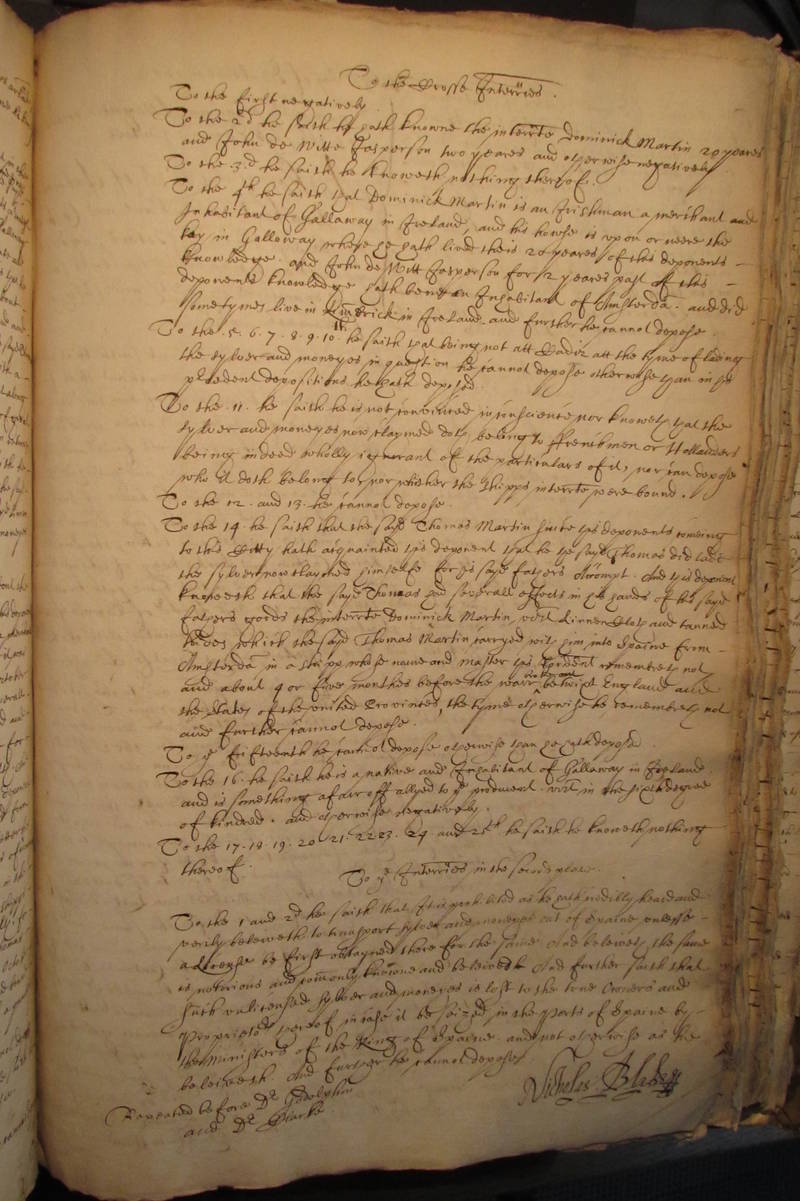 To the Crosse Interries.
To the first negatively.
To the 2d he saith he hath knowne the interrte Dominick Martin 20 yeares
and John de Witte Jasperson two yeares and otherwise negatively
To the 3.d he saith he knoweth nothing thereof.
To the 4th he saith that Dominick Martin is an Irishman a merchant and
Inhabitant of Gallaway in Ireland, and his howse is upon or neere the
key in Galloway where he hath lived theis 20 yeares of this deponents
knowledge. and John de Witt Jasperson for 2 yeares past of this
deponents knowledge hath bene an Inhabitant of Amsterda. and did
sometymes live in Limbrick in Ireland. and further he cannot depose.
To the .5. 6. 7. 8. 9. 10th. he saith that being not att Cadiz att the tyme of lading
the sylver and moneyes in question he cannot depose otherwise than in his
precedent depositions he hath deposed.
To the .11. he saith he is not convinced in conscience nor knoweth that the
sylver and moneyes now claymed doth belong to ffrenchmen or Hollanders
being indeed wholly ignorant of the particulars of it, nor can depose
who it doth belong to, nor whither the shipps interrte were bound.
To the 12. and 13. he cannot depose.
To the 14. he saith that the sayd Thomas Martin since this deponents comeing
to this Citty hath acquainted this deponent that he the sayd Thomas did lade
the sylver now claymed himselfe for his sayd fathers accompt. And this deponent
knoweth that the sayd Thomas had severall effects in his hands of his sayd
fathers goods the interrte Dominick Martin, vizt Linnen Cloth and tanned
hides which the sayd Thomas Martin carryed with him into Spaine from
Amsterda in a shipp whose name and master this deponent remembreth not
and about 4 or five monthes before the warr betwixt England and
the States of the united Provinces, the tyme otherwise he remembreth not
and further cannot depose.
To ye fifteenth he cannot depose otherwise than he hath deposed.
To the 16. he saith he is a native and Inhabitant of Gallaway in Ireland
and is something afarr off allyed to ye producent. vizt in the sixth degree
of kindred. and otherwise negatively.
To the 17. 18. 19. 20 21. 22 23. 24 and 25th he saith he knoweth nothing
thereof.
To ye Interries in the second place.
To the 1 and 2d he saith that it is prohibited as he hath credibly heard and
verily beleeveth to transport sylver and moneyes out of Spaine unlesse
a lycense be first obtayned there for the same And beleeveth the same
is notorious and comonly knowne and beleeved And further saith that
such unlicensed sylver and moneyes is lost to the true Owners and
Proprietors thereof in case it be seized in the Ports of Spaine by
the Ministers of the King of Spaine. and not otherwise as he
beleeveth And further he cannot depose
Repeated before Dr Godolphin
and Dr Clarke
Nicholas Blake